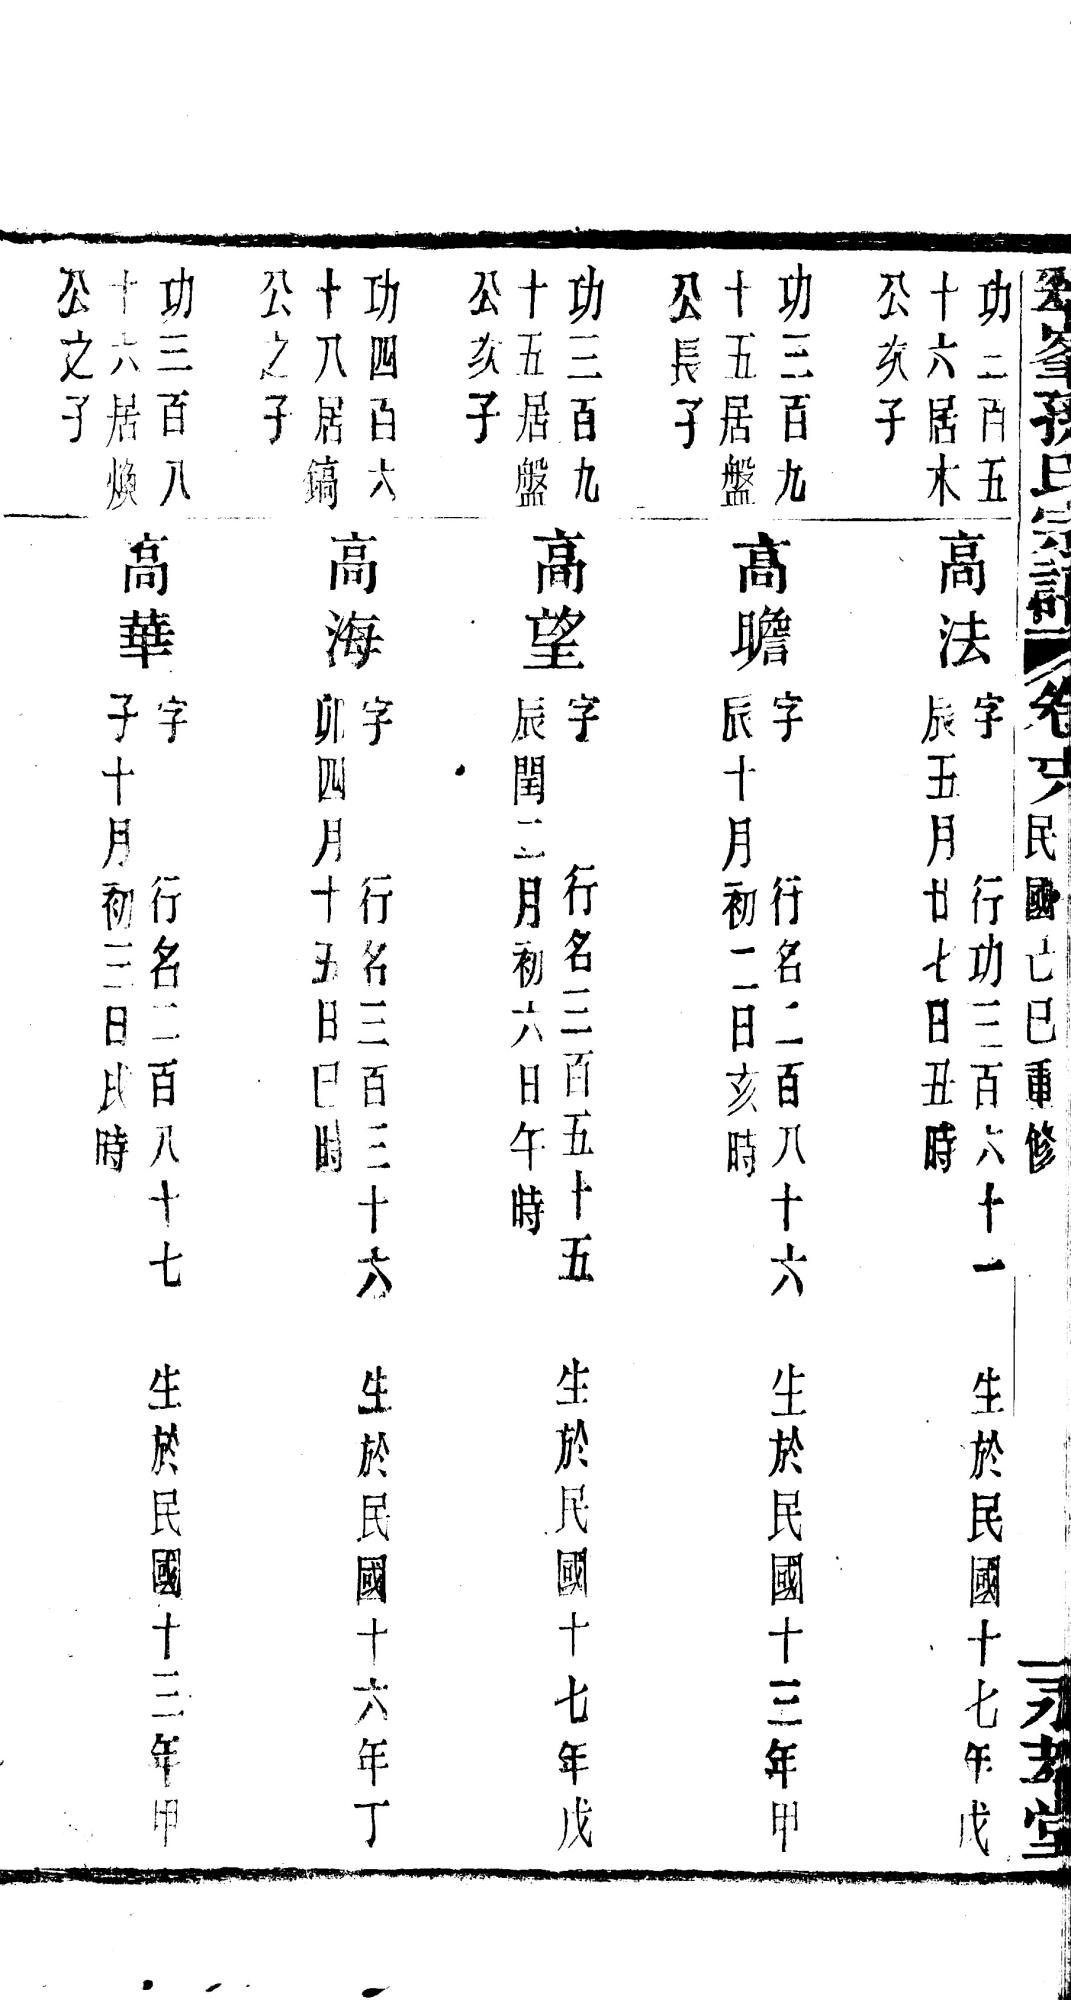 峯孫氏宗譜 卷 民國己巳重修 永孝堂
功三百五
十六居木
公次子
高法
字 行功三百六十一 生於民國十七年戊
辰五月廿七日丑時
功三百九
十五居盤
公長子
高瞻
字 行名二百八十六 生於民國十三年甲
辰十月初二日亥時
功三百九
十五居盤
公次子
高望
字 行名三百五十五 生於民國十七年戊
辰閏二月初六日午時
功四百六
十八居鎬
公之子
高海
字 行名三百三十六 生於民國十六年丁
卯四月十五日巳時
功三百八
十六居煥
公之子
高華
字 行名二百八十七 生於民國十三年甲
子十月初三日戌時